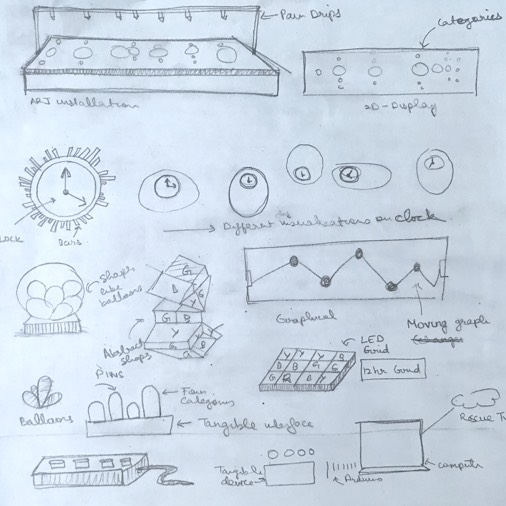 Pain Drips
Categories
ART installation
2D-Display
CLOCK
Bars
Different visualizations on clock
Shape like balloons
Abstract Shapes
G
B
G
Y
G
B
Y
Graphical
Moving graph
LED Grid
Y Y B
B B G G
12hr Grid
PINS
Four Categories
Balloons
Tangible interface
Tangible device
Arduino
computer
Rescue T